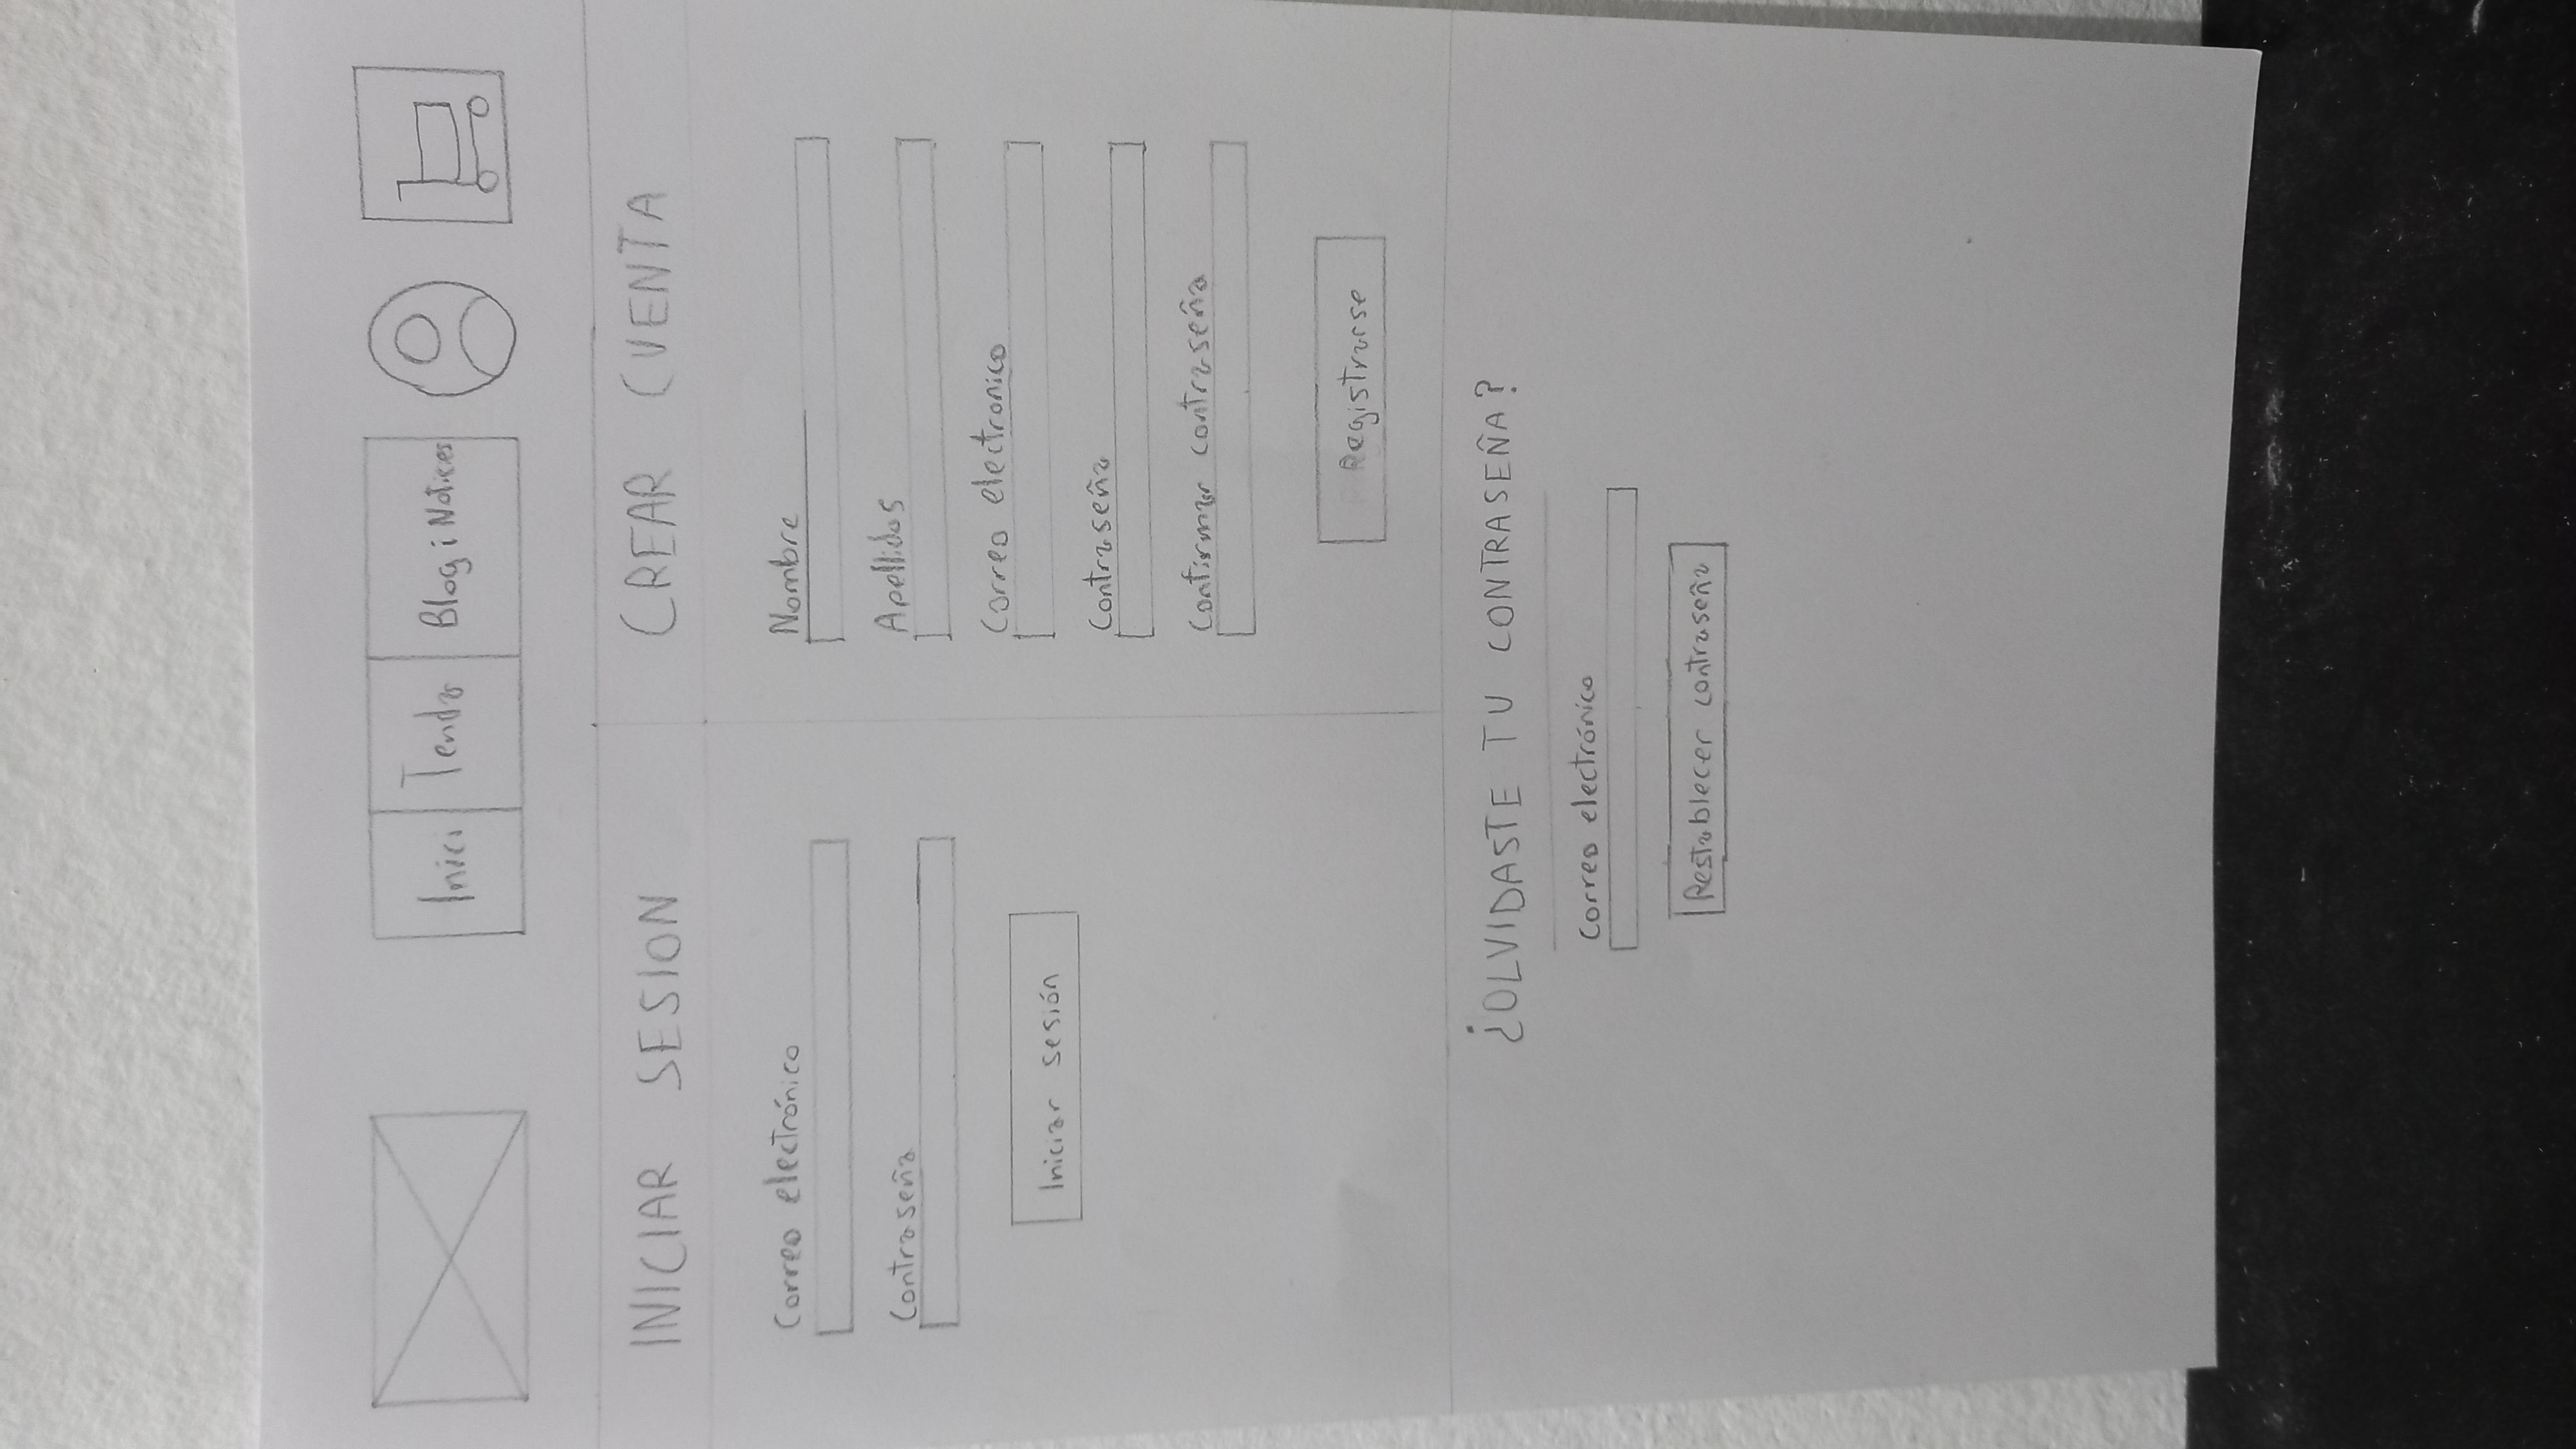 Inici Tenda Blog i Notices
INICIAR SESION
Correo electrónico
Contraseña
Iniciar sesión
CREAR CUENTA
Nombre
Apellidos
Correo electronico
Contraseña
Confirmar contraseña
Registrarse
¿OLVIDASTE TU CONTRASEÑA?
Correo electrónico
Restablecer contraseña